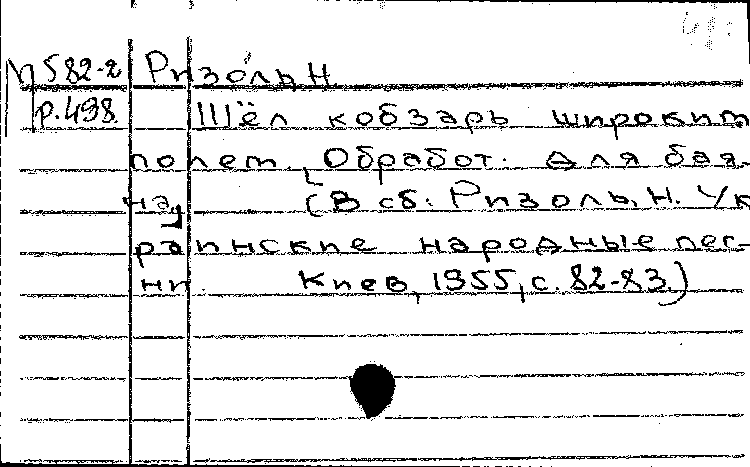 М582-2 Ризоль, Н.
р.498 Шёл кобзарь широким
полем., [Обработ. для бая-
на] (В сб.: Ризоль, Н. Ук
раинские народные пес-
ни. Киев, 1955, с. 82-83.)